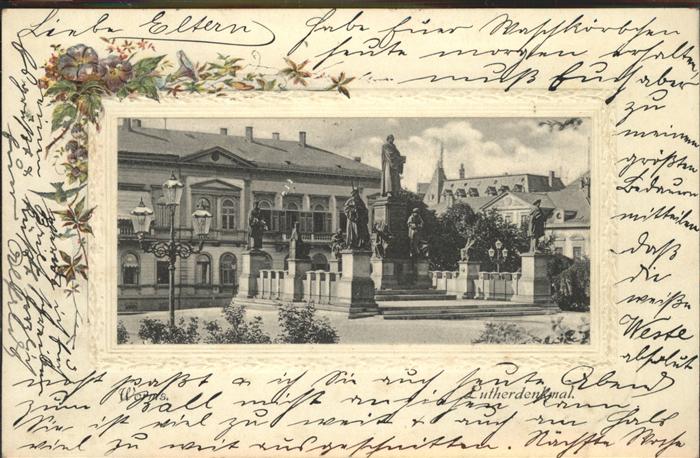 Liebe Eltern, Habe Euer Waschkörbchen
heute morgen erhalten
muß Euch aber
zu
meinem
größten
Bedauern
mitteilen
daß
die
weiße
Weste
absolut
nicht paßt & ich Sie auch heute Abend
zum Ball nicht anziehen kann
Sie ist viel zu weit & auch am Hals
viel zu weit ausgeschnitten. Nächste Woche
Worms.
Lutherdenkmal.